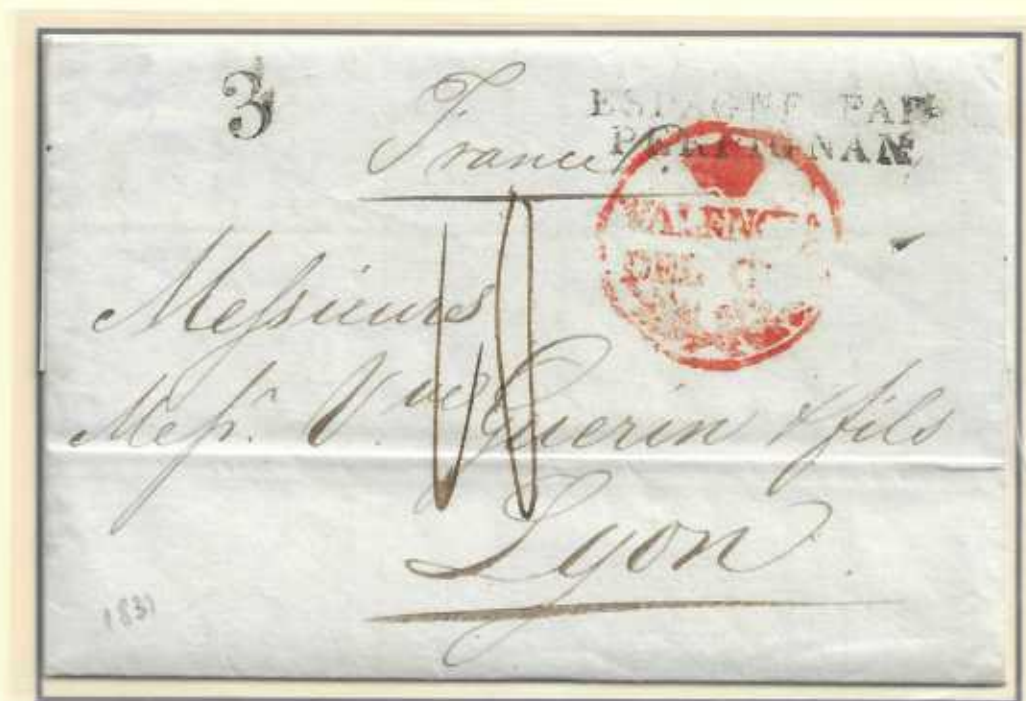 3
France
ESPAGNE PAR
PERPIGNAN
VALENC
DEL C
Messieurs
Mess.rs V.ve Guerin & fils
Lyon
1831